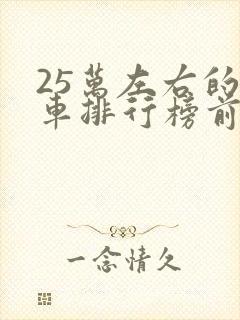 25萬左右的
車排行榜前
一念情久